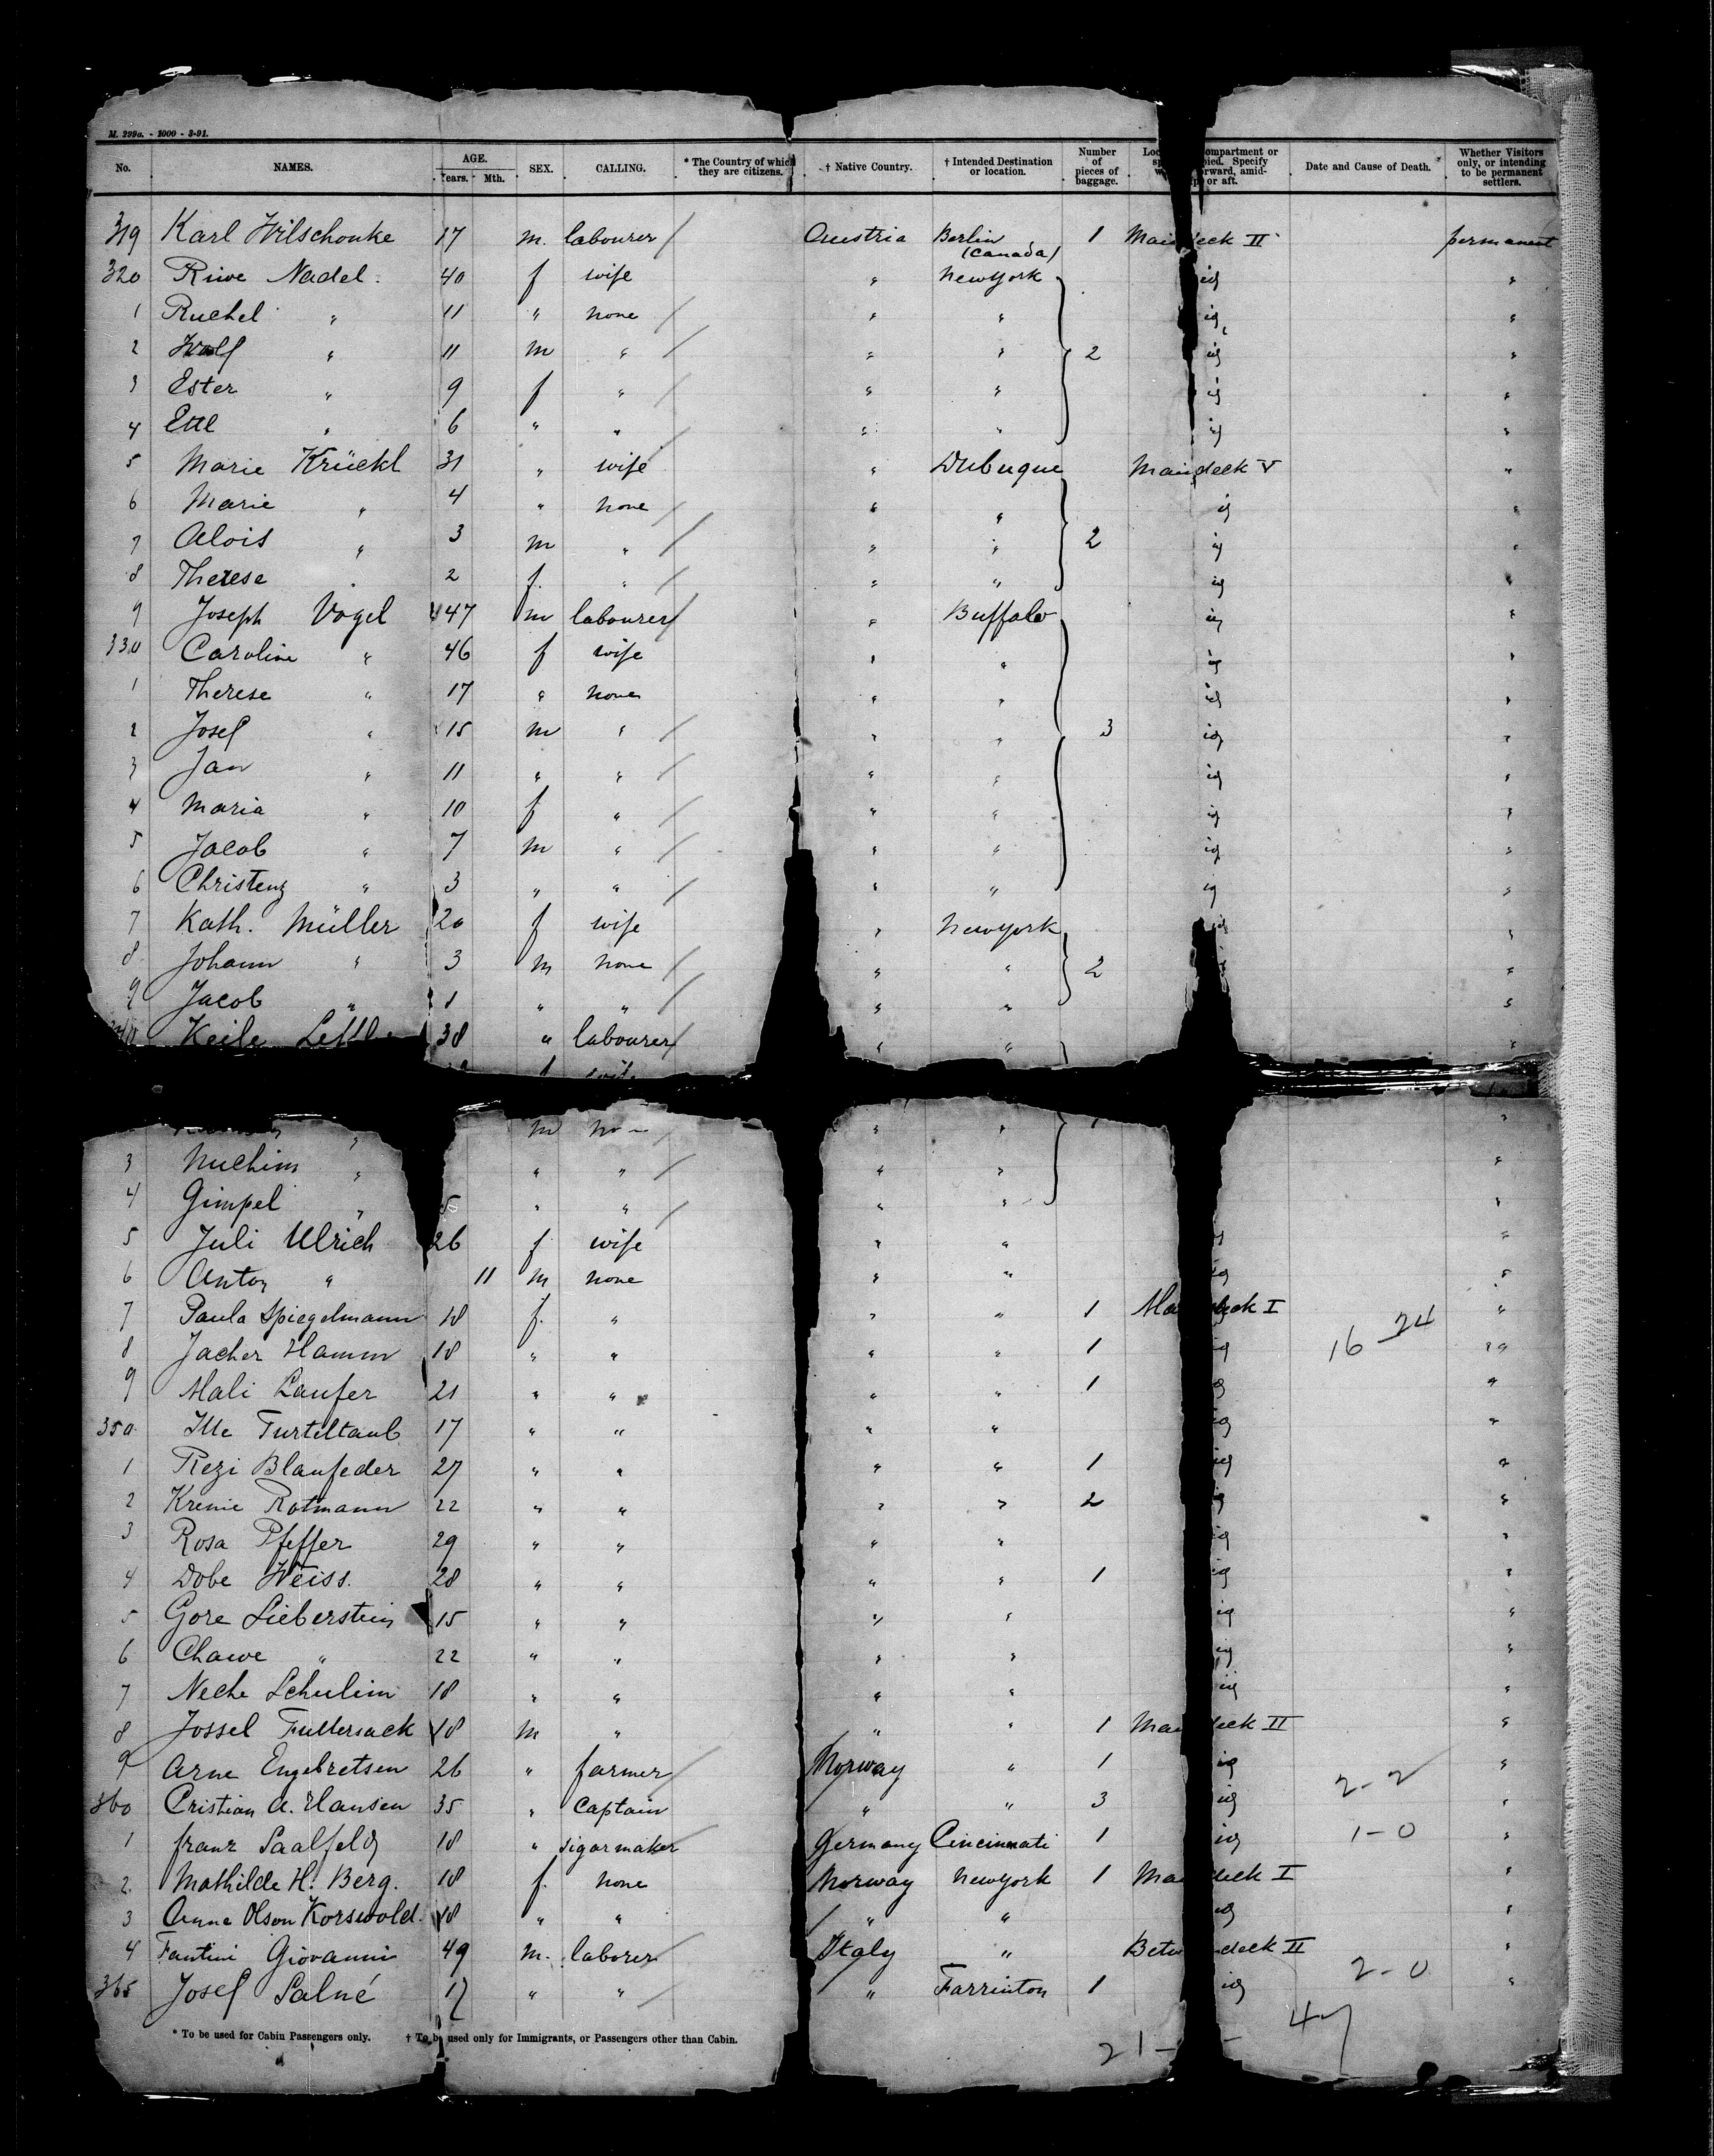 M. 299a. - 1000 - 3-91.
No. NAMES. AGE. Years. Mth. SEX. CALLING. * The Country of which they are citizens. † Native Country. † Intended Destination or location. Number of pieces of baggage. ompartment or pied. Specify orward, amid- or aft. Date and Cause of Death. Whether Visitors only, or intending to be permanent settlers.
319 Karl Hilschonke 17 m. labourer / Austria Berlin (Canada) 1 Maindeck II permanent
320 Riwe Nadel 40 f wife " New York "
1 Ruchel " 11 " none / " " "
2 Wolf " 11 m " / " " 2 "
3 Ester " 9 f " / " " "
4 Ettl " 6 " " / " " "
5 Marie Krückl 31 " wife " Dubuque Maindeck V "
6 Marie " 4 " none / " " "
7 Alois " 3 m " / " " 2 "
8 Therese " 2 f. " / " " "
9 Joseph Vogel 47 m labourer / " Buffalo "
330 Caroline " 46 f wife " " "
1 Therese " 17 " none " " "
2 Josef " 15 m " / " " 3 "
3 Jan " 11 " " / " " "
4 Maria " 10 f " / " " "
5 Jacob " 7 m " / " " "
6 Christenz " 3 " " / " " "
7 Kath. Müller 20 f wife " New York "
8 Johann " 3 m none / " " 2 "
9 Jacob " 1 " " / " " "
Keile 38 " labourer / " " "
f wife
m / " " "
3 Nuchim " " " / " " "
4 Gimpel " 5 " " / " " "
5 Juli Ulrich 26 f wife " " "
6 Anton " 11 m none " " "
7 Paula Spiegelmann 18 f. " " " 1 deck I "
16 24
8 Jacher Hamm 18 " " " " 1 "
9 Mali Laufer 21 " " " " 1 "
350 Itte Turteltaub 17 " " " " "
1 Rezi Blaufeder 27 " " " " 1 "
2 Krenie Rotmann 22 " " " " 2 "
3 Rosa Pfeffer 29 " " " " "
4 Dobe Weiss. 28 " " " " 1 "
5 Gore Lieberstein 15 " " " " "
6 Chawe " 22 " " " " "
7 Neche Schulim 18 " " " " "
8 Jossel Futtersack 18 m " " " 1 deck II "
9 Arne Engebretsen 26 " farmer / Norway " 1 "
2-2
360 Cristian A. Hansen 35 " Captain " " 3 "
1 franz Saalfeld 18 " sigarmaker Germany Cincinnati 1 1-0 "
2 Mathilde H. Berg. 18 f. none Norway New York 1 deck I "
3 Anna Olson Korswold. 18 " " " " "
4 Fantini Giovanni 49 m. laborer / Italy " deck II "
2-0
365 Josef Salné 17 " " / " Farrinton 1 "
* To be used for Cabin Passengers only. † To be used only for Immigrants, or Passengers other than Cabin.
21 - 47